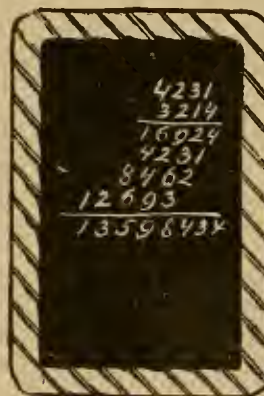 4231
3214
16924
4231
8462
12693
13598434